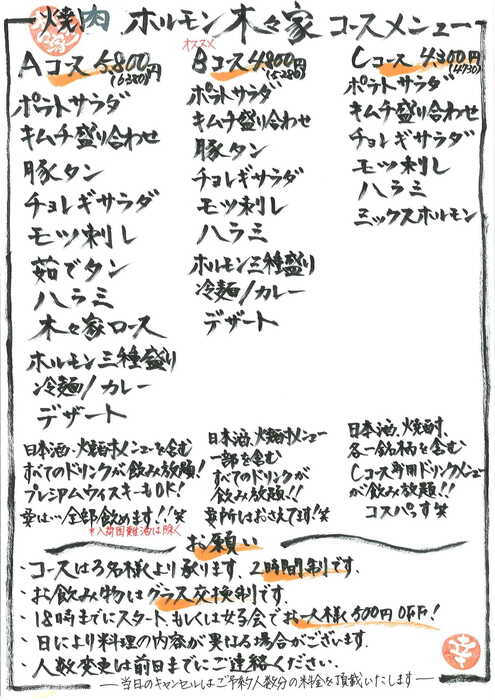 焼肉 ホルモン 木々家 コースメニュー
Aコース 5,800円
(6380)
ポテトサラダ
キムチ盛り合わせ
豚タン
チョレギサラダ
モツ刺し
茹でタン
ハラミ
木々家ロース
ホルモン三種盛り
冷麺/カレー
デザート
日本酒、焼酎メニューを含む
すべてのドリンクが飲み放題!
プレミアムウィスキーもOK!
要は…全部飲めます!!笑
*入荷困難酒は除く
オススメ
Bコース 4,800円
(5280)
ポテトサラダ
キムチ盛り合わせ
豚タン
チョレギサラダ
モツ刺し
ハラミ
ホルモン三種盛り
冷麺/カレー
デザート
日本酒、焼酎メニュー
一部を含む
すべてのドリンクが
飲み放題!!
要所はおさえてます!笑
Cコース 4,300円
(4730)
ポテトサラダ
キムチ盛り合わせ
チョレギサラダ
モツ刺し
ハラミ
ミックスホルモン
日本酒、焼酎、
各一銘柄を含む
Cコース専用ドリンクメニュー
が飲み放題!!
コスパっす笑
お願い
・コースは3名様より承ります。2時間制です。
・お飲み物はグラス交換制です。
・18時までにスタート、もしくは女子会でお一人様500円OFF!
・日により料理の内容が異なる場合がございます。
・人数変更は前日までにご連絡ください。
当日のキャンセルはご予約人数分の料金を頂戴いたします
幸